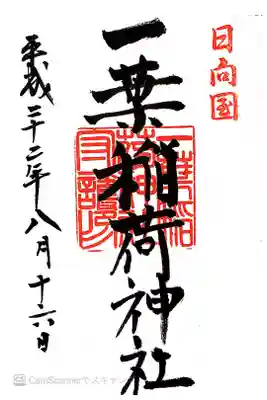 日向国
一葉稲荷神社
平成二十二年八月十六日
CamScannerでスキャン